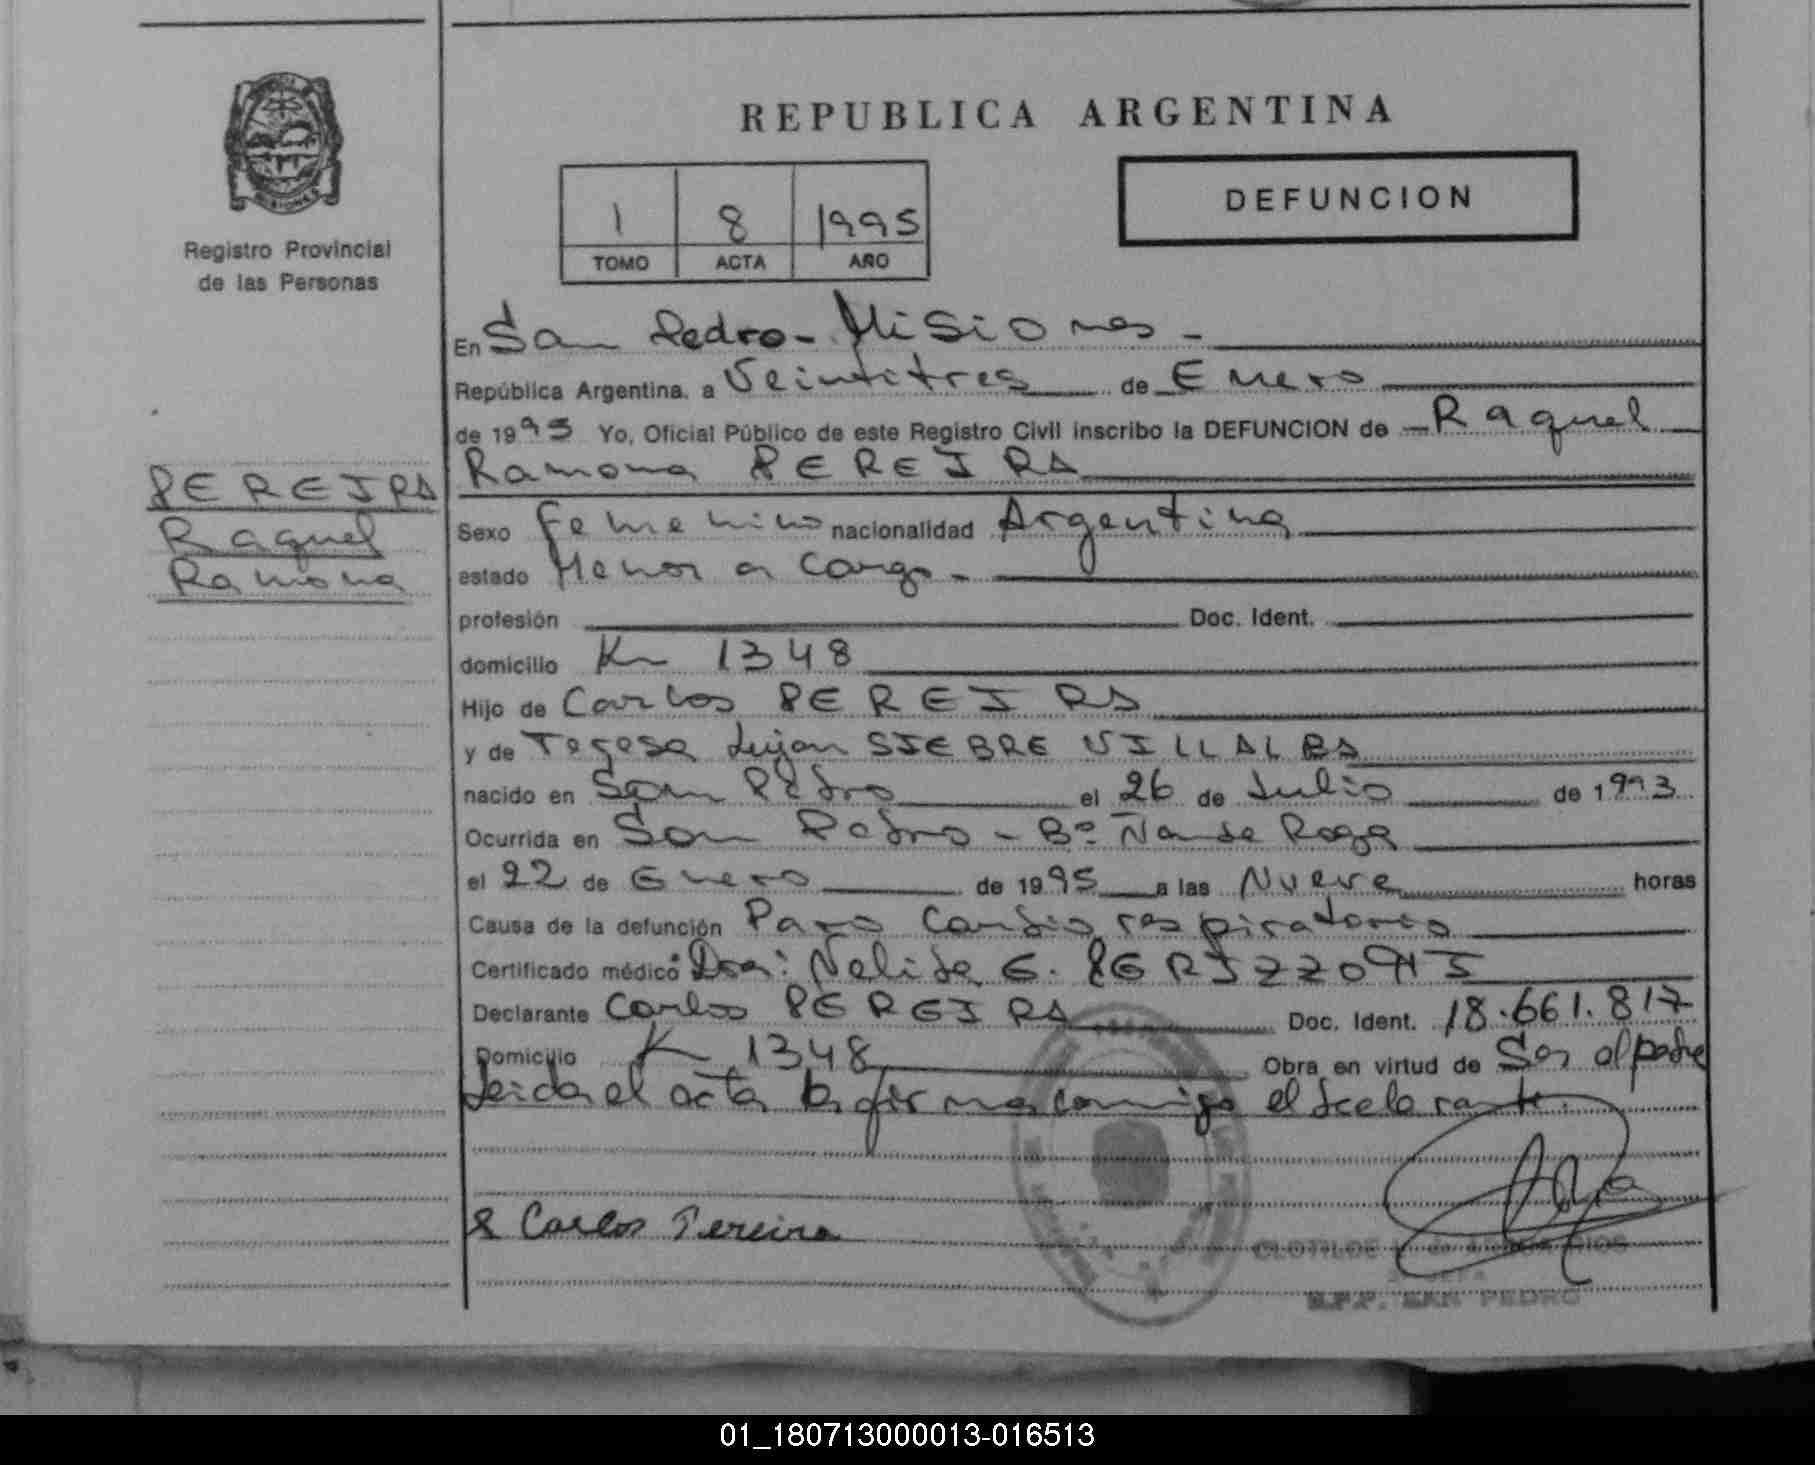 REPUBLICA ARGENTINA
DEFUNCION
1 8 1995
TOMO ACTA AÑO
MISIONES
Registro Provincial
de las Personas
PEREIRA
Raquel
Ramona
En San Pedro - Misiones -
República Argentina, a Veintitres de Enero
de 1995 Yo, Oficial Público de este Registro Civil inscribo la DEFUNCION de Raquel
Ramona PEREIRA
Sexo femenino nacionalidad Argentina
estado Menor a cargo -
profesión Doc. Ident.
domicilio Km 1348
Hijo de Carlos PEREIRA
y de Teresa Lujan SIEBRE VILLALBA
nacido en San Pedro el 26 de Julio de 1993
Ocurrida en San Pedro - Bº Ñande Roga
el 22 de Enero de 1995 a las Nueve horas
Causa de la defunción Paro Cardio respiratorio
Certificado médico Dra: Nelida E.
Declarante Carlos PEREIRA Doc. Ident. 18.661.817
Domicilio Km 1348 Obra en virtud de Ser el padre
Leida el acta la firma conmigo el declarante.
Carlos Pereira
CLOTILDE
R.P.P. SAN PEDRO
01_180713000013-016513